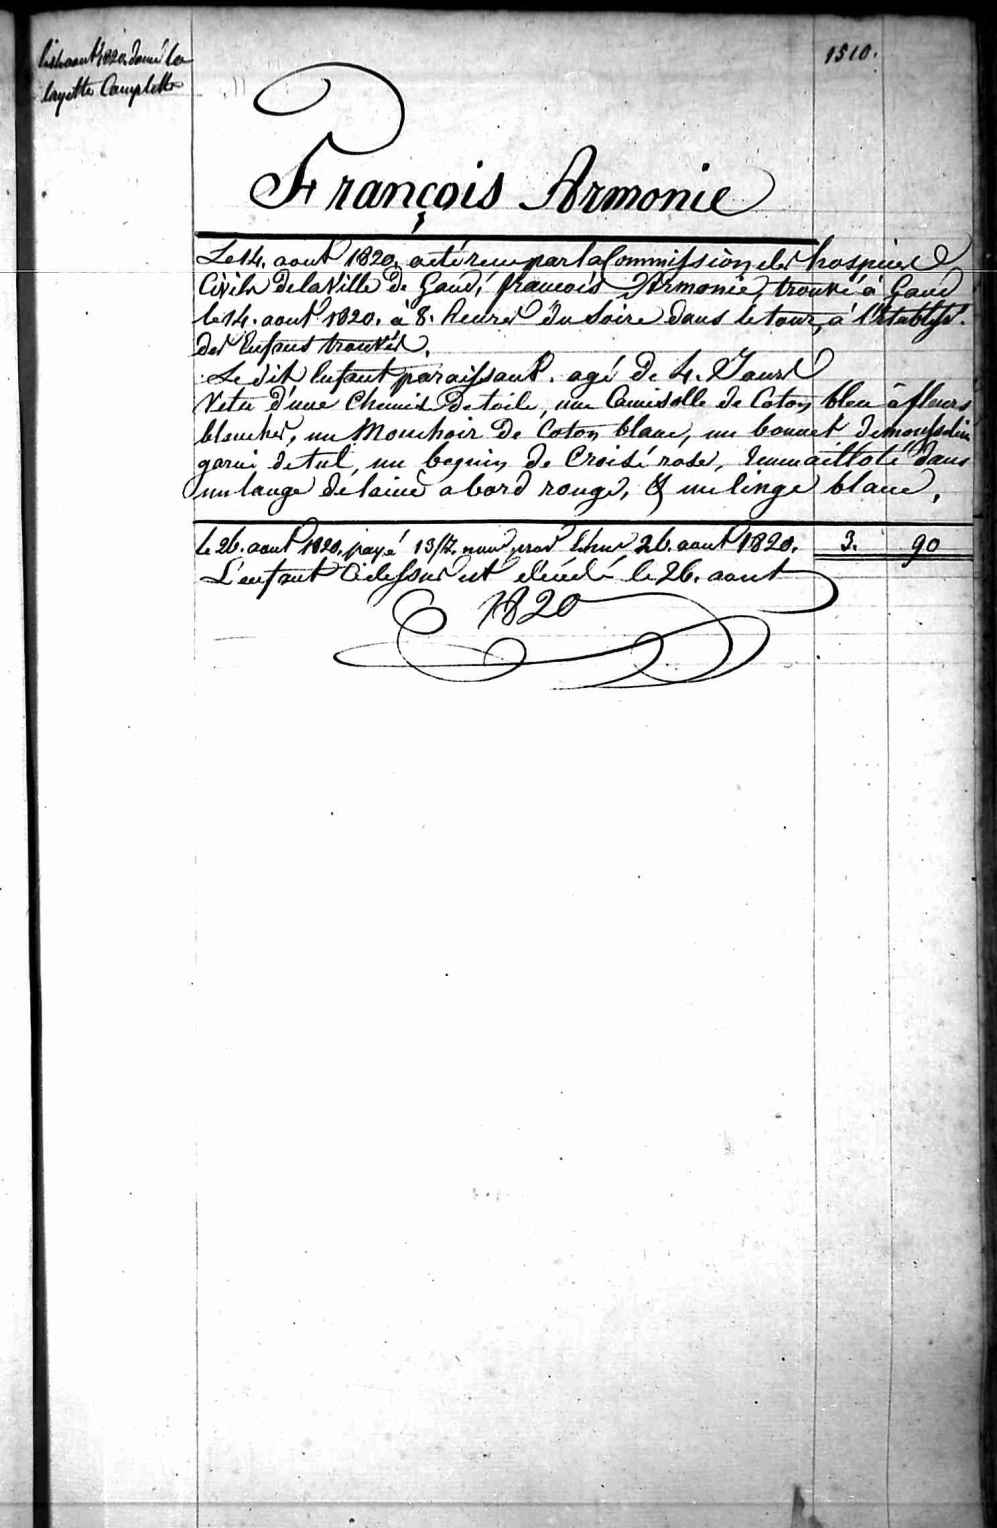 aout 1820. donné la
layette Complette
1510.
François Armonie
Le 14. aout 1820. a été reçu par la Commission des hospices
Civils de la Ville de Gand, françois Armonie, trouvé à Gand
le 14. aout 1820. à 8. heures du Soire dans le tour, à l'Etabliss.
des Enfans trouvés.
Le dit Enfant paraissant. agé de 4. Jours
Vetu d'une Chemise de toile, une Camisolle de Coton bleu à fleurs
blanches, un Mouchoir de Coton blanc, un bonnet de mousselin
garni de tul, un beguin de Croisé rose, Emmailloté dans
un lange de laine a bord rouge, & un linge blanc,
le 26. aout 1820. payé 26. aout 1820. 3. 90
L'enfant Cidessus est décédé le 26. aout
1820